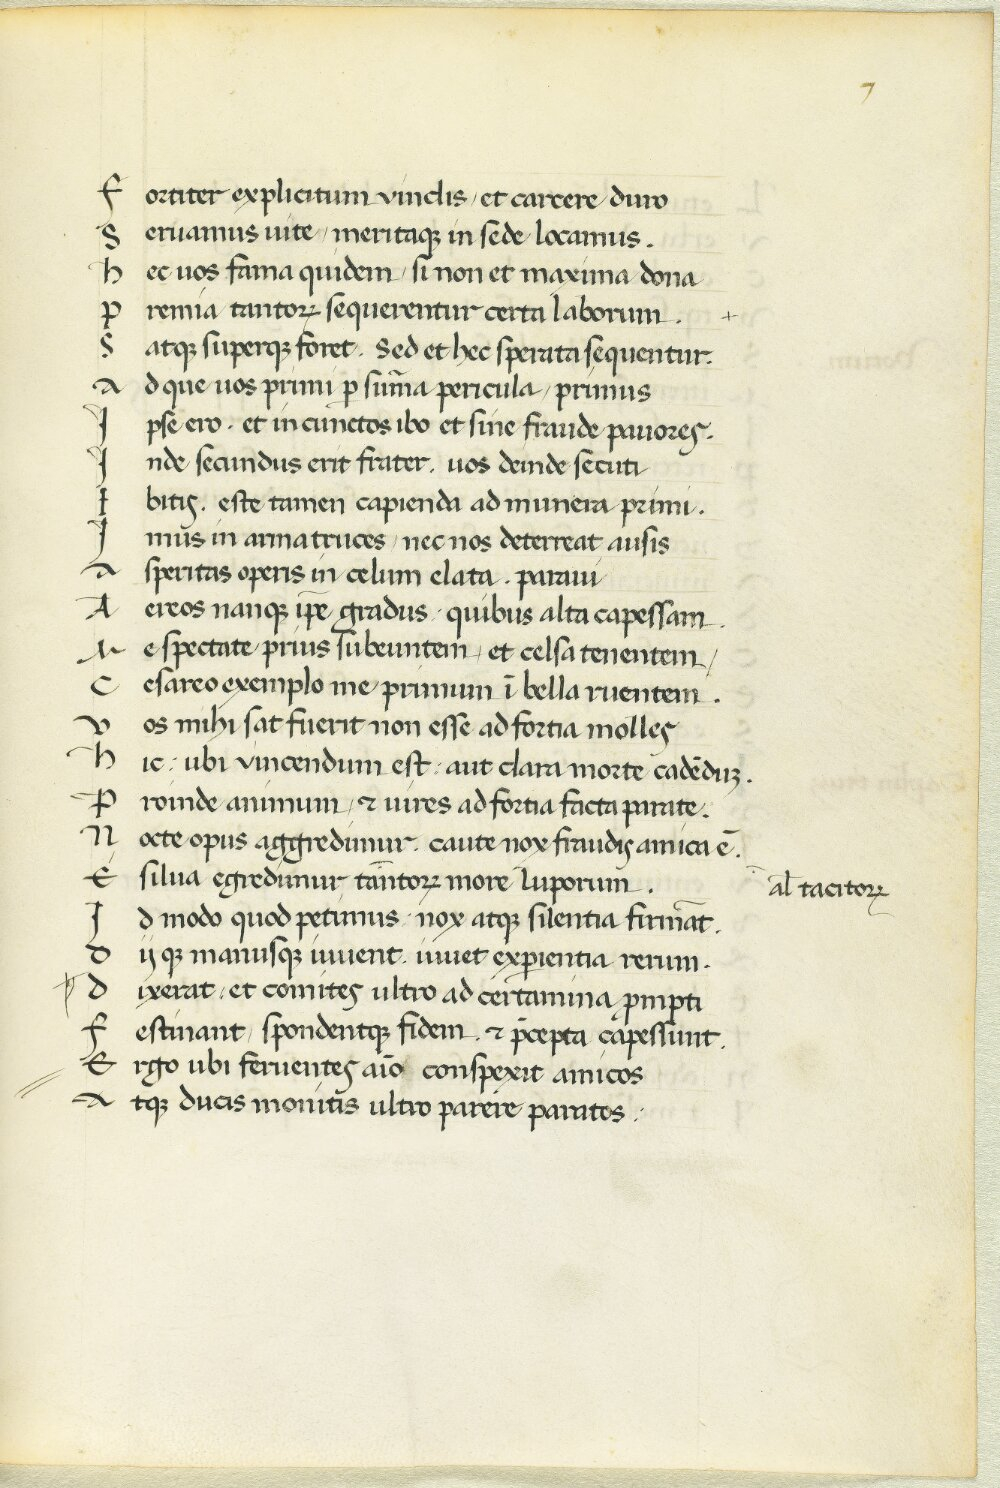 7
Fortiter explicitum vinclis / et carcere duro
Seruamus uite / meritaqꝫ in sede locamus.
hec uos fama quidem / si non et maxima dona
premia tantoꝝ sequerentur certa laborum. +
Satqꝫ superqꝫ foret. Sed et hec sperata sequentur.
ad que uos primi ꝑ sum̄a pericula / primus
Ipse ero. et in cunctos ibo et sine fraude pauores.
Inde secundus erit frater. uos deinde secuti
Ibitis. este tamen capienda ad munera primi.
Imus in arma truces / nec nos deterreat ausis
asperitas operis in celum elata. paraui
Aereos nanqꝫ ip̄e gradus. quibus alta capessam.
Me spectate prius subeuntem / et celsa tenentem /
Cesareo exemplo me primum ī bella ruentem.
vos mihi sat fuerit non esse ad fortia molles
hic: ubi vincendum est: aut clara morte cadēduꝫ.
Proinde animum / ⁊ uires ad fortia facta parate.
Nocte opus aggredimur. caute nox fraudis amica ē.
E silua egredimur tantoꝝ more luporum. al tacitoꝝ
Id modo quod petimus nox atqꝫ silentia firmāt.
diiqꝫ manusqꝫ iuuent. iuuet exꝑientia rerum.
dixerat / et comites ultro ad certamina ꝓmpti
Festinant / spondentqꝫ fidem. ⁊ p̄cepta capessunt.
Ergo ubi feruentes aīo conspexit amicos
atqꝫ ducis monitis ultro parere paratos: